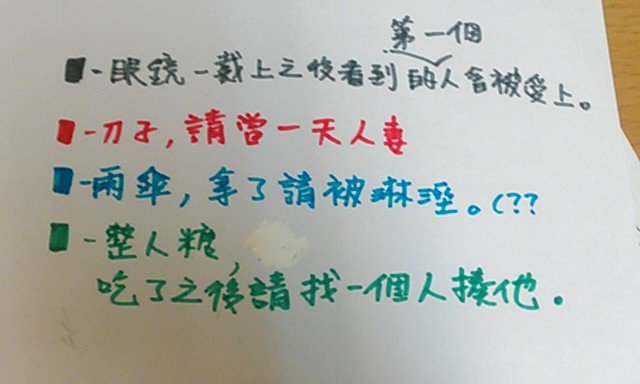 第一個
-眼鏡-戴上之後看到的人會被愛上。
-刀子,請當一天人妻
-雨傘,拿了請被琳溼。(??
-整人糖,
吃了之後請找一個人揍他。